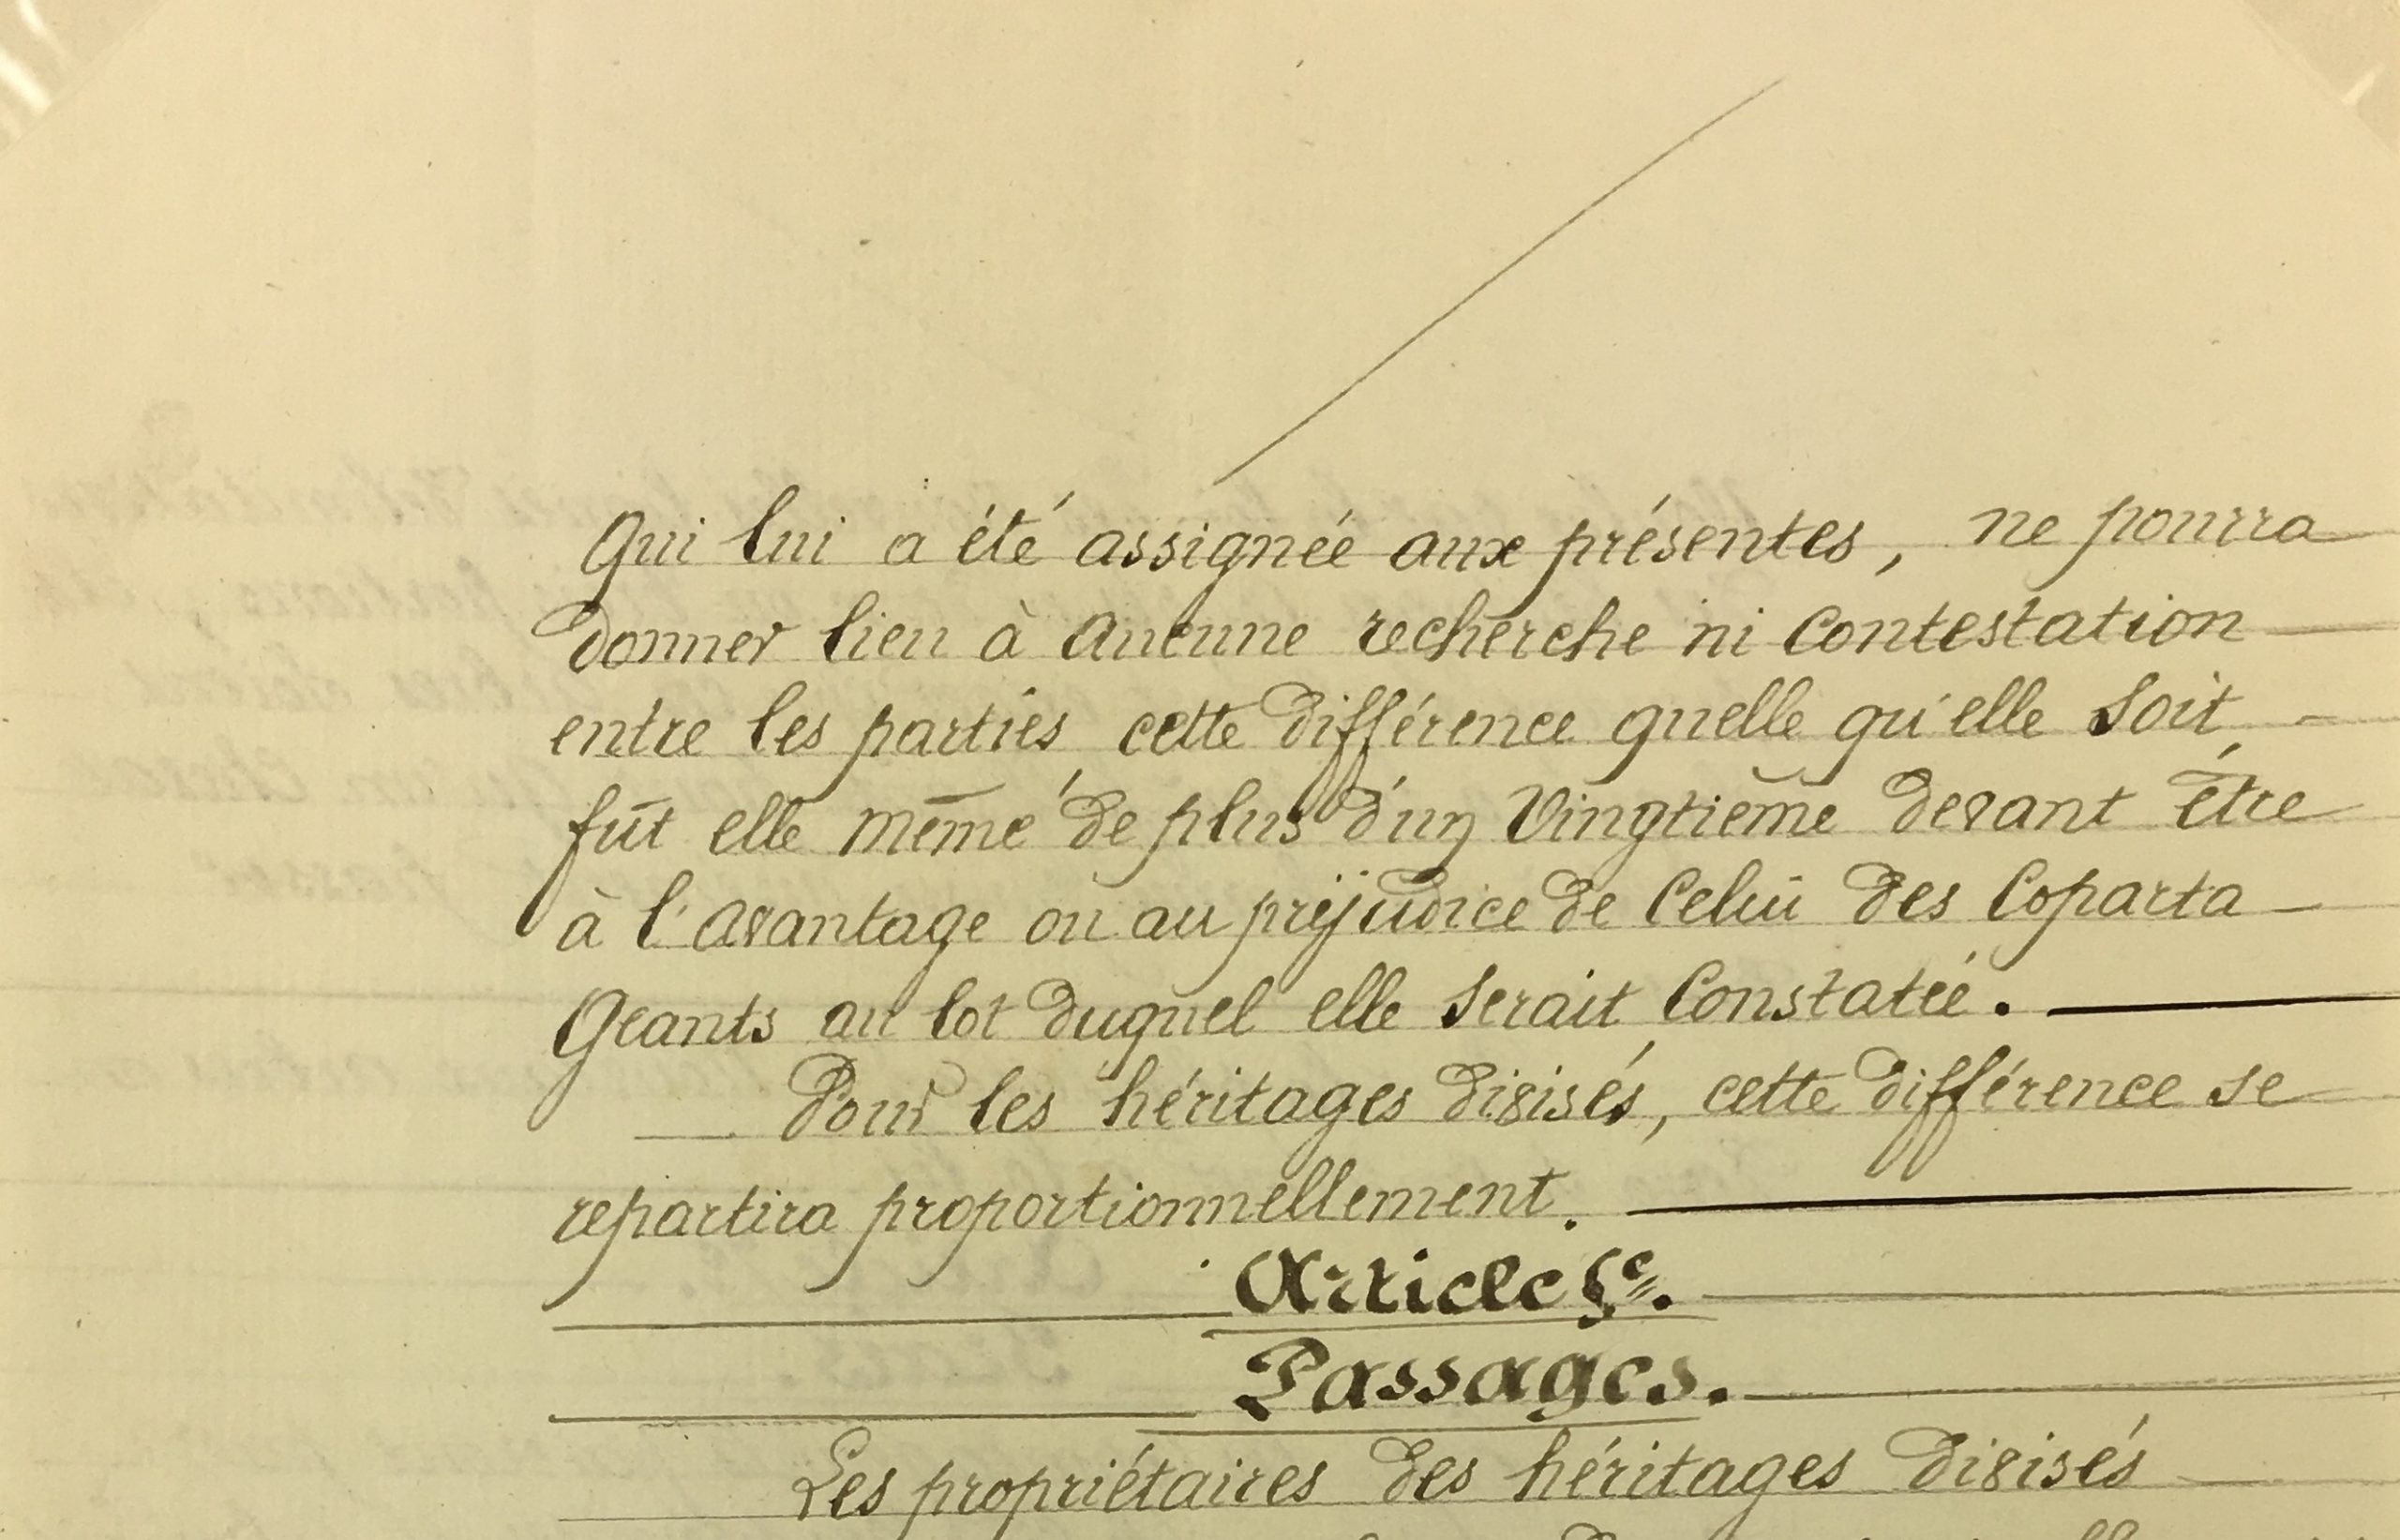 Qui lui a été assignée aux présentes, ne pourra
donner lieu à aucune recherche ni contestation
entre les parties, cette différence quelle qu'elle soit,
fût elle même de plus d'un vingtième devant être
à l'avantage ou au préjudice de celui des coparta
geants au lot duquel elle serait constatée.
Pour les héritages divisés, cette différence se
repartira proportionnellement.
Article 5e.
Passages.
Les propriétaires des héritages divisés